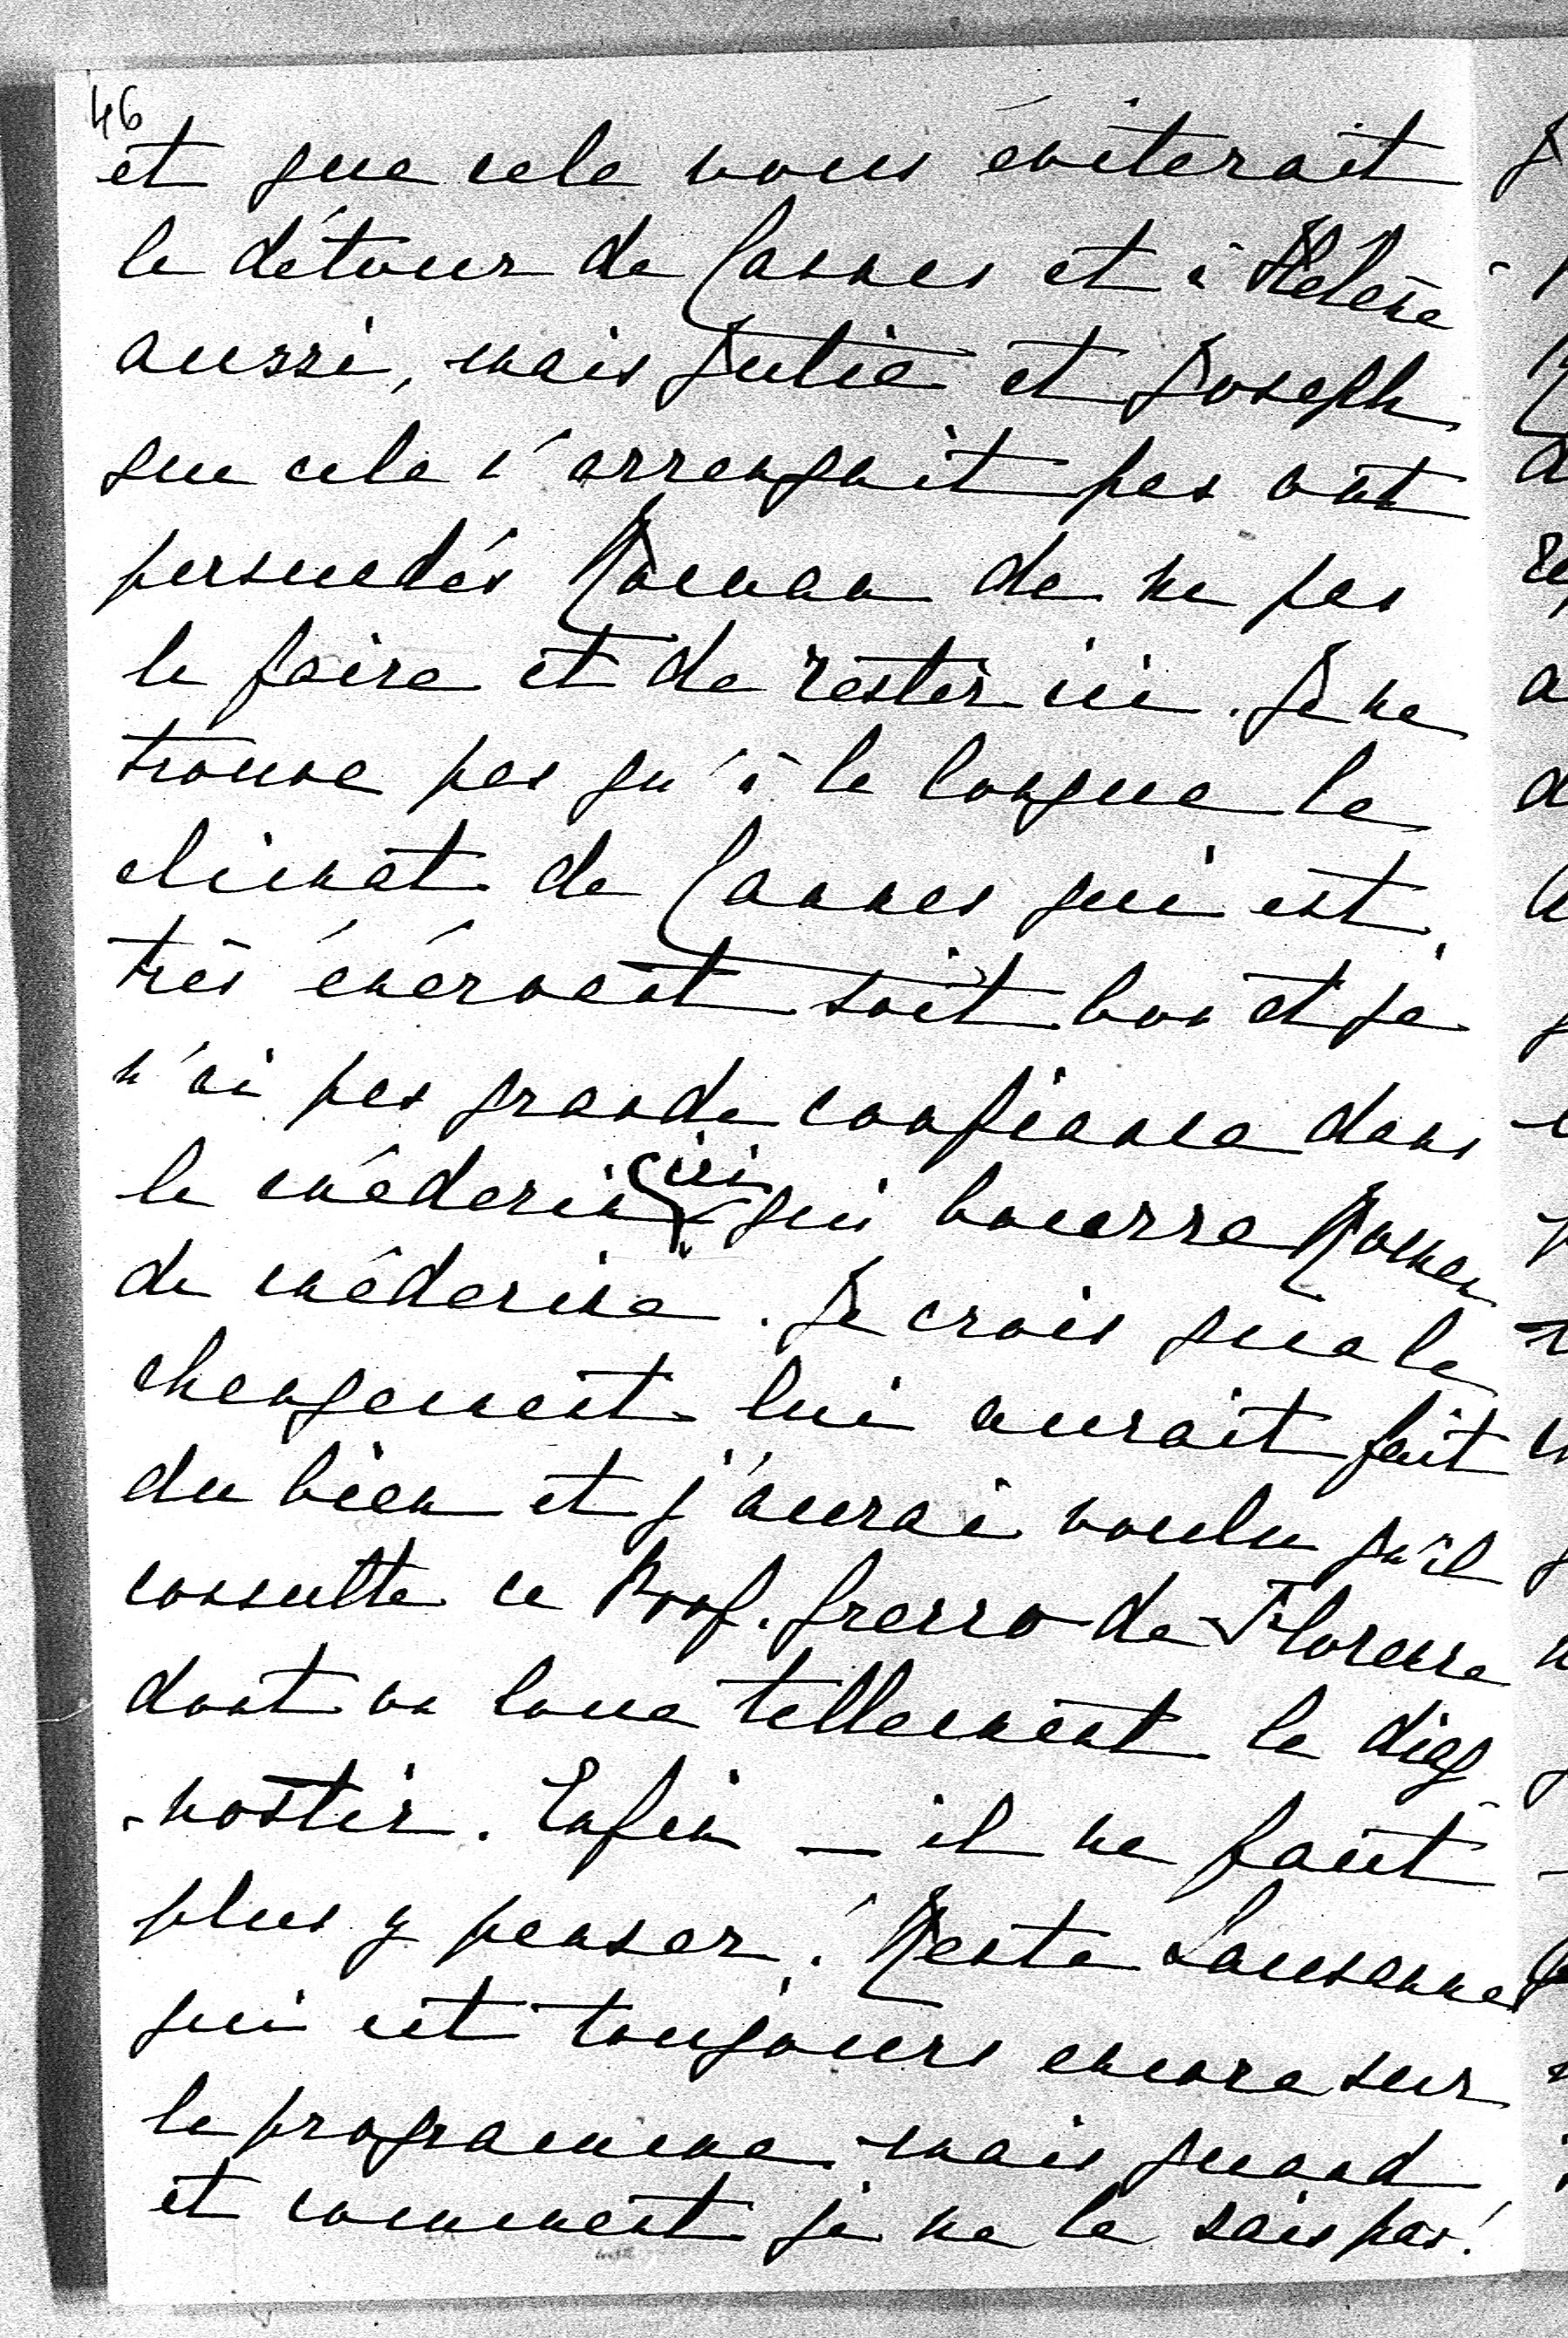 46
et que cela vous éviterait
le détour de Cannes et à Hélène
aussi, mais Jutia et Joseph
que cela n'arrangait pas ont
persuadés Roman de ne pas
le faire et de rester ici. Je ne
trouve pas qu'à la longue le
climat de Cannes qui est
très énérvant soit bon et je
n'ai pas grande confiance dans
le médecin ici qui bourre Roman
de médecine. Je crois que le
changement lui aurait fait
du bien et j'aurai voulu qu'il
consulte ce Prof. de Florence
dont on loue tellement le diag-
-nostic. Enfin — il ne faut
plus y penser! Reste Lausanne
qui est toujours encore sur
le programme mais quand
et comment je ne le sais pas!